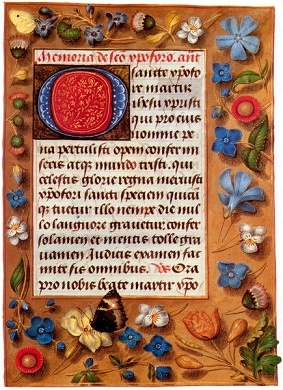 Memoria de sco xpoforo. ant
O sancte xpofo
re martir
ihesu xpristi
qui pro eius
nomine pe
na pertulisti opem confer mi
seris atqꝫ mundo tristi. qui
celestis glorie regna meruisti
xpofori sancti speciem quicū
qꝫ tuetur illo nempe die nul
lo languore grauetur. confer
solamen et mentis tolle gra
uamen Judicis examen fac
mite sis omnibus. Ora
pro nobis beate martir xpo